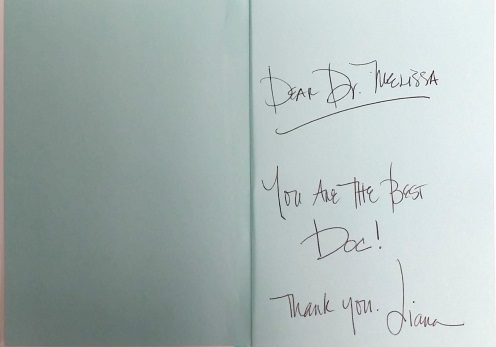 Dear Dr. Melissa
You Are The Best
Doc!
Thank you. Liana